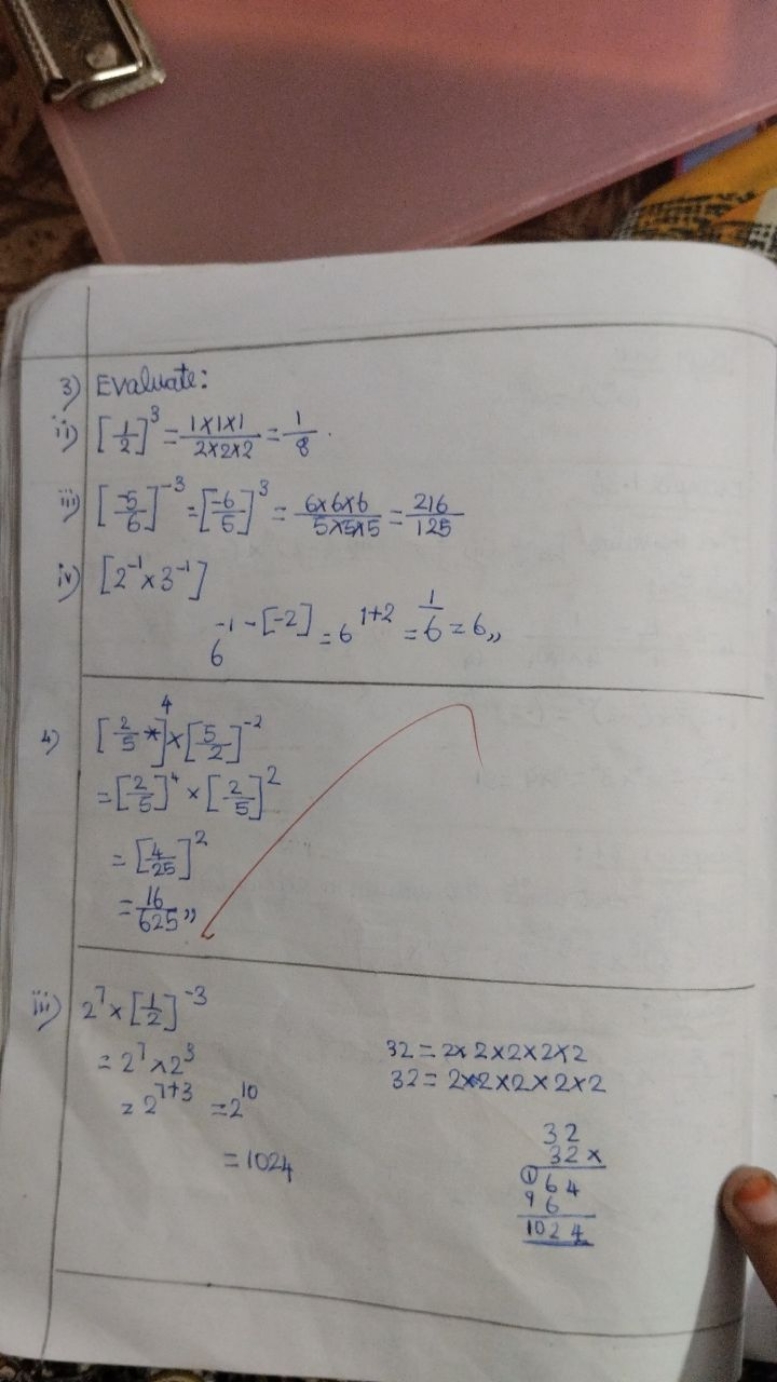 3) Evaluate:
ii) [1/2]^3 = 1×1×1/2×2×2 = 1/8 .
iii) [-5/6]^-3 = [-6/5]^3 = 6×6×6/5×5×5 = 216/125
iv) [2^-1 × 3^-1]
6^-1-[-2] = 6^1+2 = 1/6 = 6,,
4) [2/5 *]^4 × [5/2]^-2
= [2/5]^4 × [2/5]^2
= [4/25]^2
= 16/625,,
iii) 2^7 × [1/2]^-3
= 2^7 × 2^3
= 2^7+3 = 2^10
= 1024
32 = 2×2×2×2×2
32 = 2×2×2×2×2
32
32 ×
① 64
96
1024